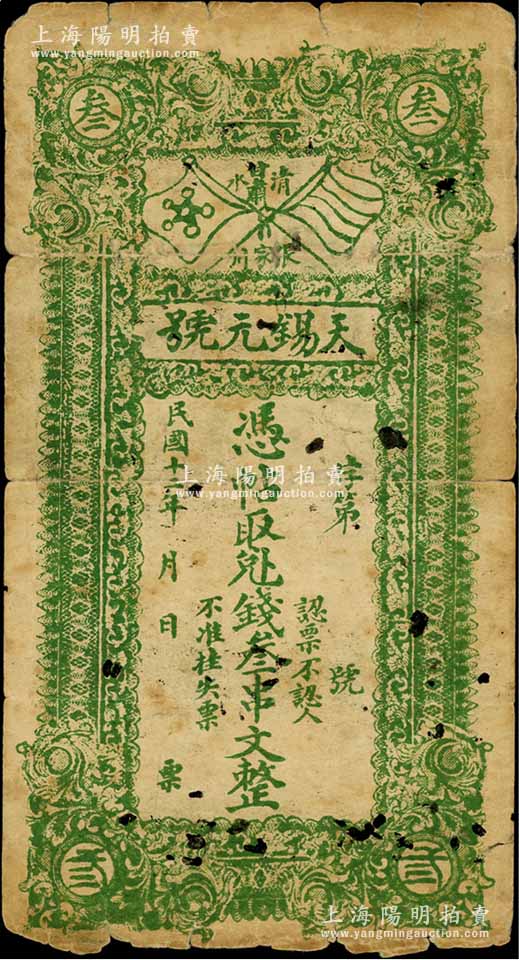 上海陽明拍賣
www.yangmingauction.com
叁
叁
甘肅
清水
張家川
天錫元號
字第 號
認票不認人
憑帖取兌錢叁串文整
不准挂失票
民國十 年 月 日 票
上海陽明拍賣
www.yangmingauction.com
弎
弎
上海陽明拍賣
www.yangmingauction.com